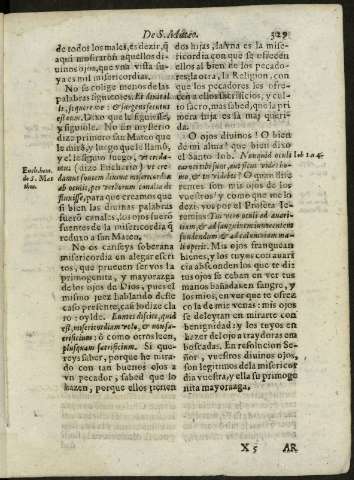 De S. Mateo.
329
de todos los males, es dezir, q̃
aqui mostrarõ aquellos di
uinos ojos, que vna vista su
ya es mil misericordias.
No se colige menos de las
palabras siguientes: Et ait il
li, sequere me: & surgens secutus
est eum. Dixo que le siguiesse,
y siguiole. No sin mysterio
dize primero san Mateo que
le mirò, y luego que le llamò,
y el le siguio luego, vt creda-
mus (dize Eucherio) vt cre
damus fontem illum misericordiæ
ab oculis, per verborum canalia de
fluxisse, para que creamos que
si bien las diuinas palabras
fuerõ canales, los ojos fuerõ
fuentes de la misericordia q̃
reduxo a san Mateo.
No os canseys soberana
misericordia en alegar escri
tos, que prueuen ser vos la
primogenita, y mayorazga
de los ojos de Dios, pues el
mismo juez hablando deste
caso presente, casi lo dize cla
ro: oylde. Euntes discite, quid
est, misericordiam volo, & non sa-
crificium: ò como otros leen,
plusquam sacrificium. Si que-
reys saber, porque he mira-
do con tan buenos ojos a
vn pecador, sabed que lo
hazen, porque ellos tienen
Eucheri. hom.
de S. Mat
theo.
dos hijas, la vna es la mise-
ricordia con que se ofrecen
ellos al bien de los pecado-
res: la otra, la Religion, con
que los pecadores les ofre-
cen a ellos sacrificios, y cul-
to sacro, mas sabed, que la pri
mera hija es la mas que-
rida.
O ojos diuinos! O bien
de mi alma! que bien dixo
el Santo Iob. Nunquid oculi
carnei tibi sunt, aut sicut videt ho-
mo, & tu videbis? O quan dife
rentes son mis ojos de los
vuestros! y como que me lo
dezis vos por el Profeta Ie-
remias: Tui vero oculi ad auari
tiam, & ad sanguinem innocentem
fundendum & ad calumniam ma-
li operis. Mis ojos franquean
bienes, y los tuyos con auari
cia absconden los que te di:
tus ojos se ceban en ver tus
manos bañadas en sangre, y
los mios, en ver que te ofrez
co la de mis venas: mis ojos
se deleytan en mirarte con
benignidad: y los tuyos en
hazer del ojo a traydoras em
boscadas. En resolucion Se-
ñor, vuestros diuinos ojos,
son legitimos de la misericor
dia vuestra, y ella su primoge
nita mayorazga,
Iob 10.4.
X 5
AR